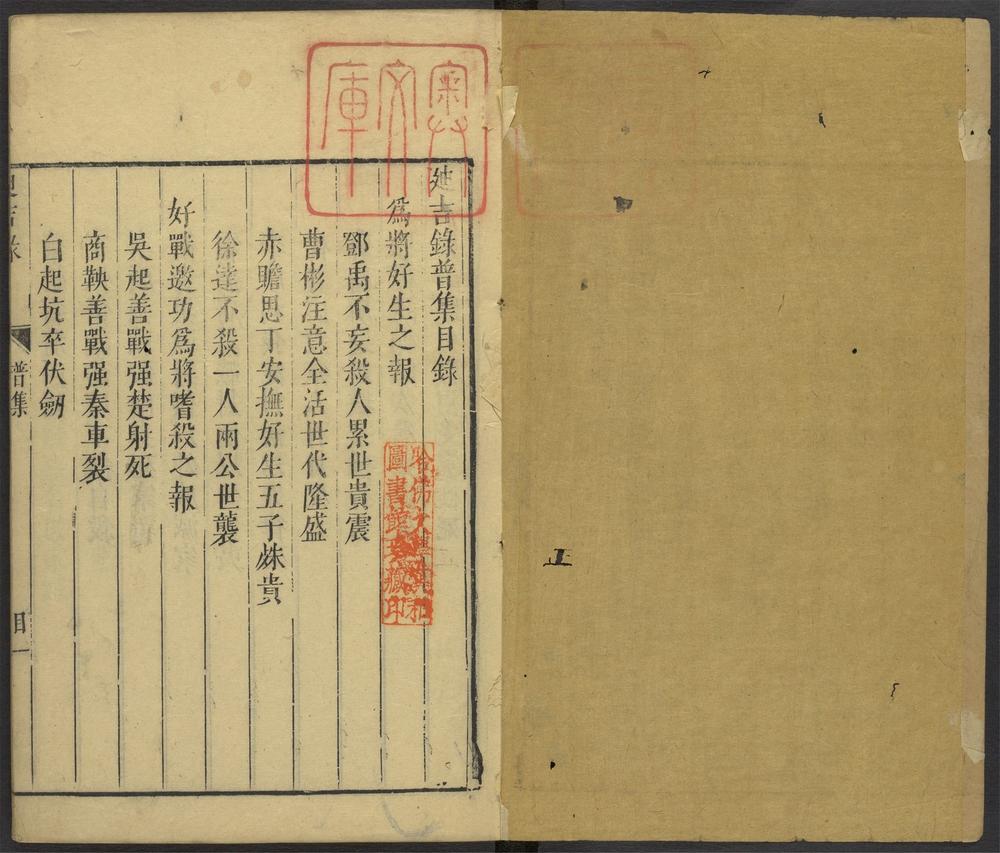 廸吉錄普集目錄
爲將好生之報
鄧禹不妄殺人累世貴震
曹彬注意全活世代隆盛
赤瞻思丁安撫好生五子烋貴
徐達不殺一人兩公世襲
好戰邀功爲將嗜殺之報
吳起善戰强楚射死
商鞅善戰强秦車裂
白起坑卒伏劒
普集
目一
哈佛大學漢和
圖書館珍藏印
文庫